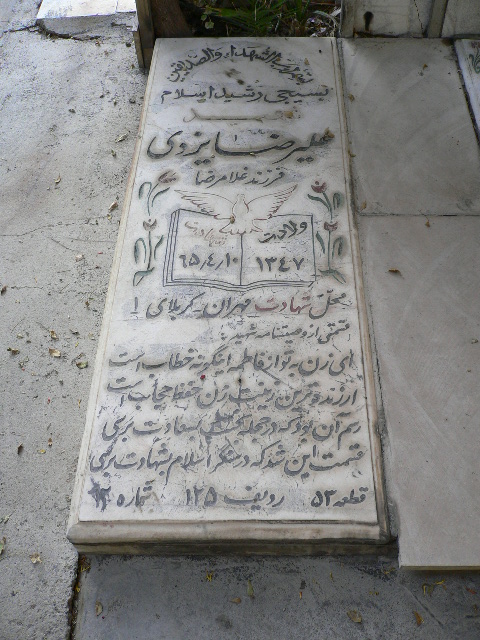 بسم رب الشهداء والصدیقین
بسیجی رشید اسلام
شهید
علیرضا ایزدی
فرزند غلامرضا
ولادت شهادت
۱۳۴۷ ۶۵،۴،۱۰
محل شهادت مهران - کربلای ۱
قسمتی از وصیتنامه شهید:
ای زن به تو از فاطمه اینگونه خطاب است
ارزنده‌ترین زینت زن حفظ حجاب است
رسم آن بود که در حجله بسعادت برسی
قسمت این شد که در سنگر اسلام بشهادت برسی
قطعه ۵۳ ردیف ۱۲۵ شماره